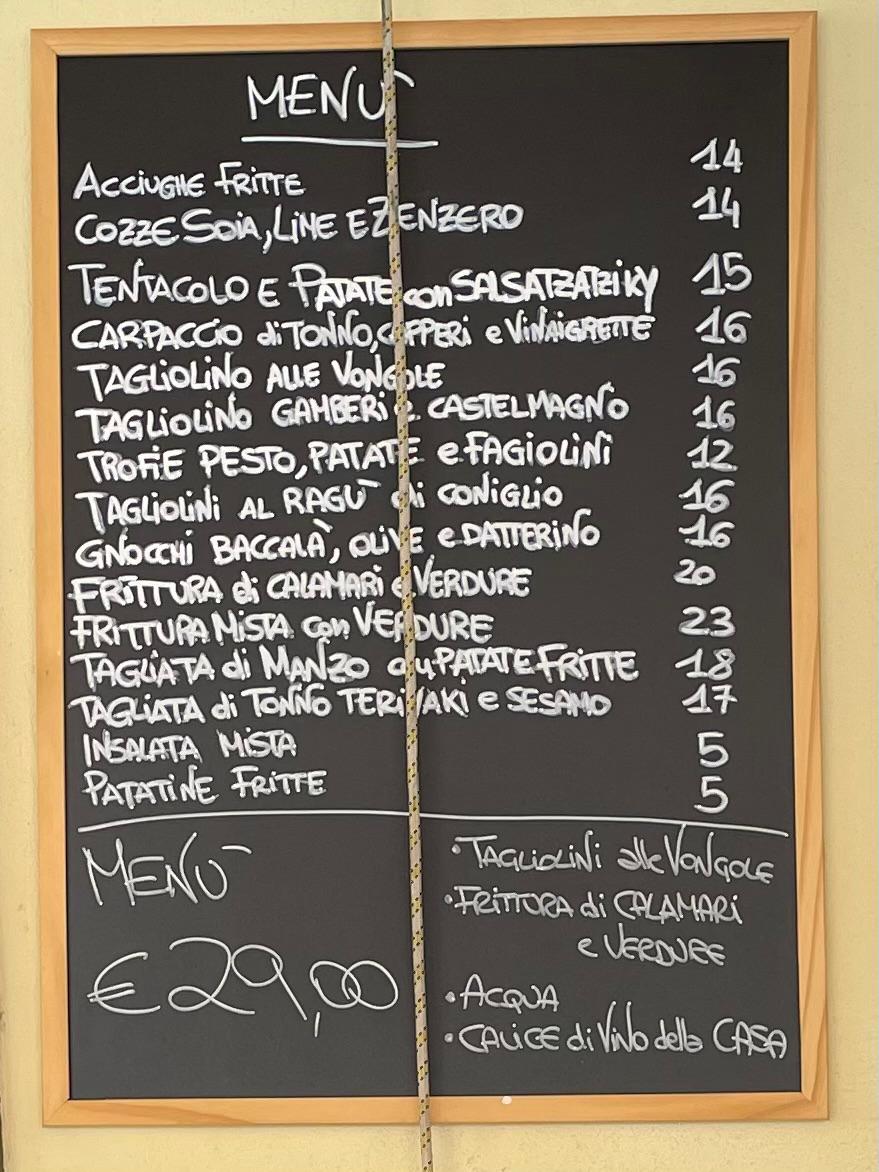 MENÙ
ACCIUGHE FRITTE 14
COZZE SOIA, LIME E ZENZERO 14
TENTACOLO E PATATE con SALSA TZATZIKY 15
CARPACCIO di TONNO, CAPPERI e VINAIGRETTE 16
TAGLIOLINO ALLE VONGOLE 16
TAGLIOLINO GAMBERI e CASTELMAGNO 16
TROFIE PESTO, PATATE e FAGIOLINI 12
TAGLIOLINI AL RAGÙ di CONIGLIO 16
GNOCCHI BACCALÀ, OLIVE e DATTERINO 16
FRITTURA di CALAMARI e VERDURE 20
FRITTURA MISTA con VERDURE 23
TAGLIATA di MANZO con PATATE FRITTE 18
TAGLIATA di TONNO TERIYAKI e SESAMO 17
INSALATA MISTA 5
PATATINE FRITTE 5
MENÙ
€ 29,00
• TAGLIOLINI alle VONGOLE
• FRITTURA di CALAMARI
e VERDURE
• ACQUA
• CALICE di VINO della CASA